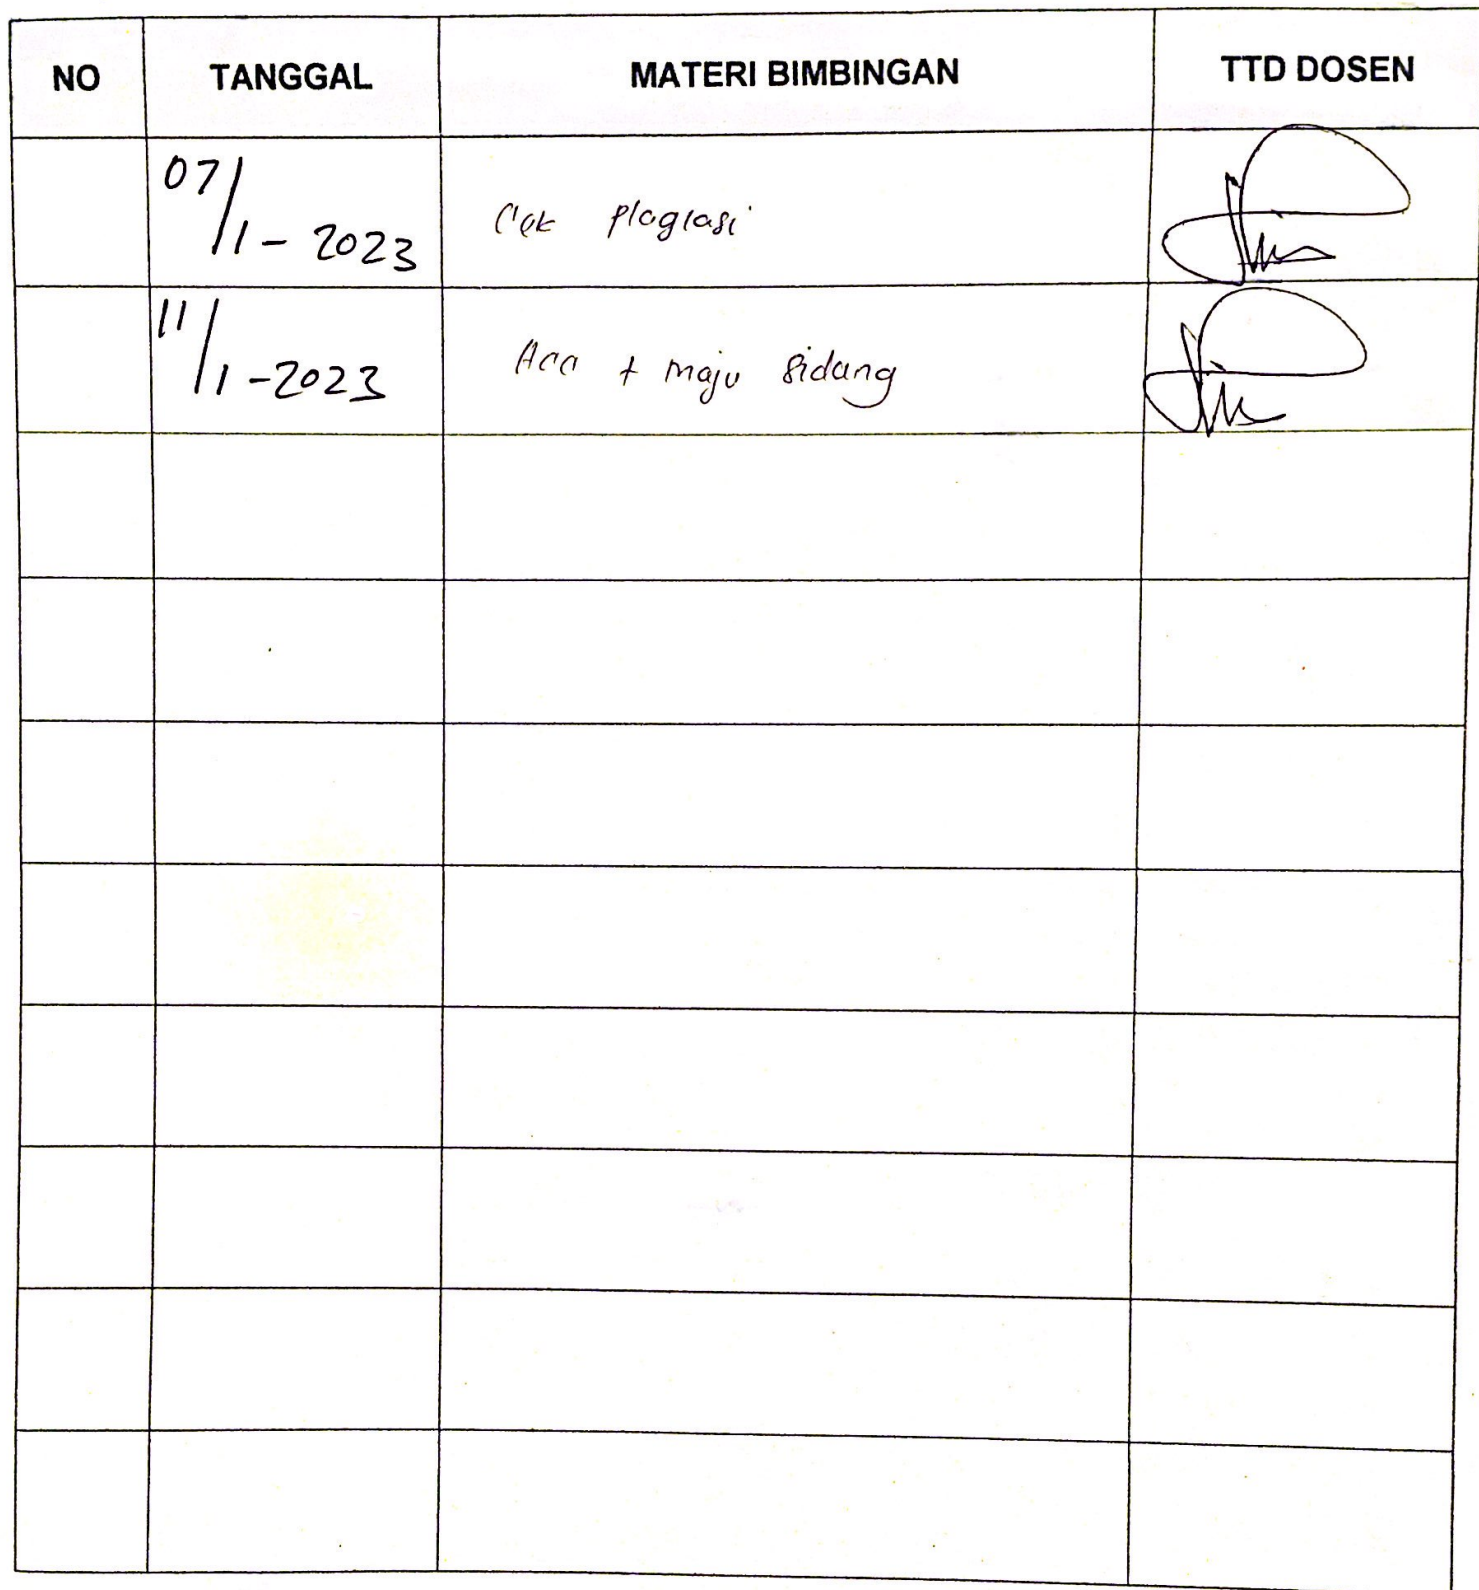 NO TANGGAL MATERI BIMBINGAN TTD DOSEN
07/1-2023 Cek plagiasi
11/1-2023 Acc + maju sidang